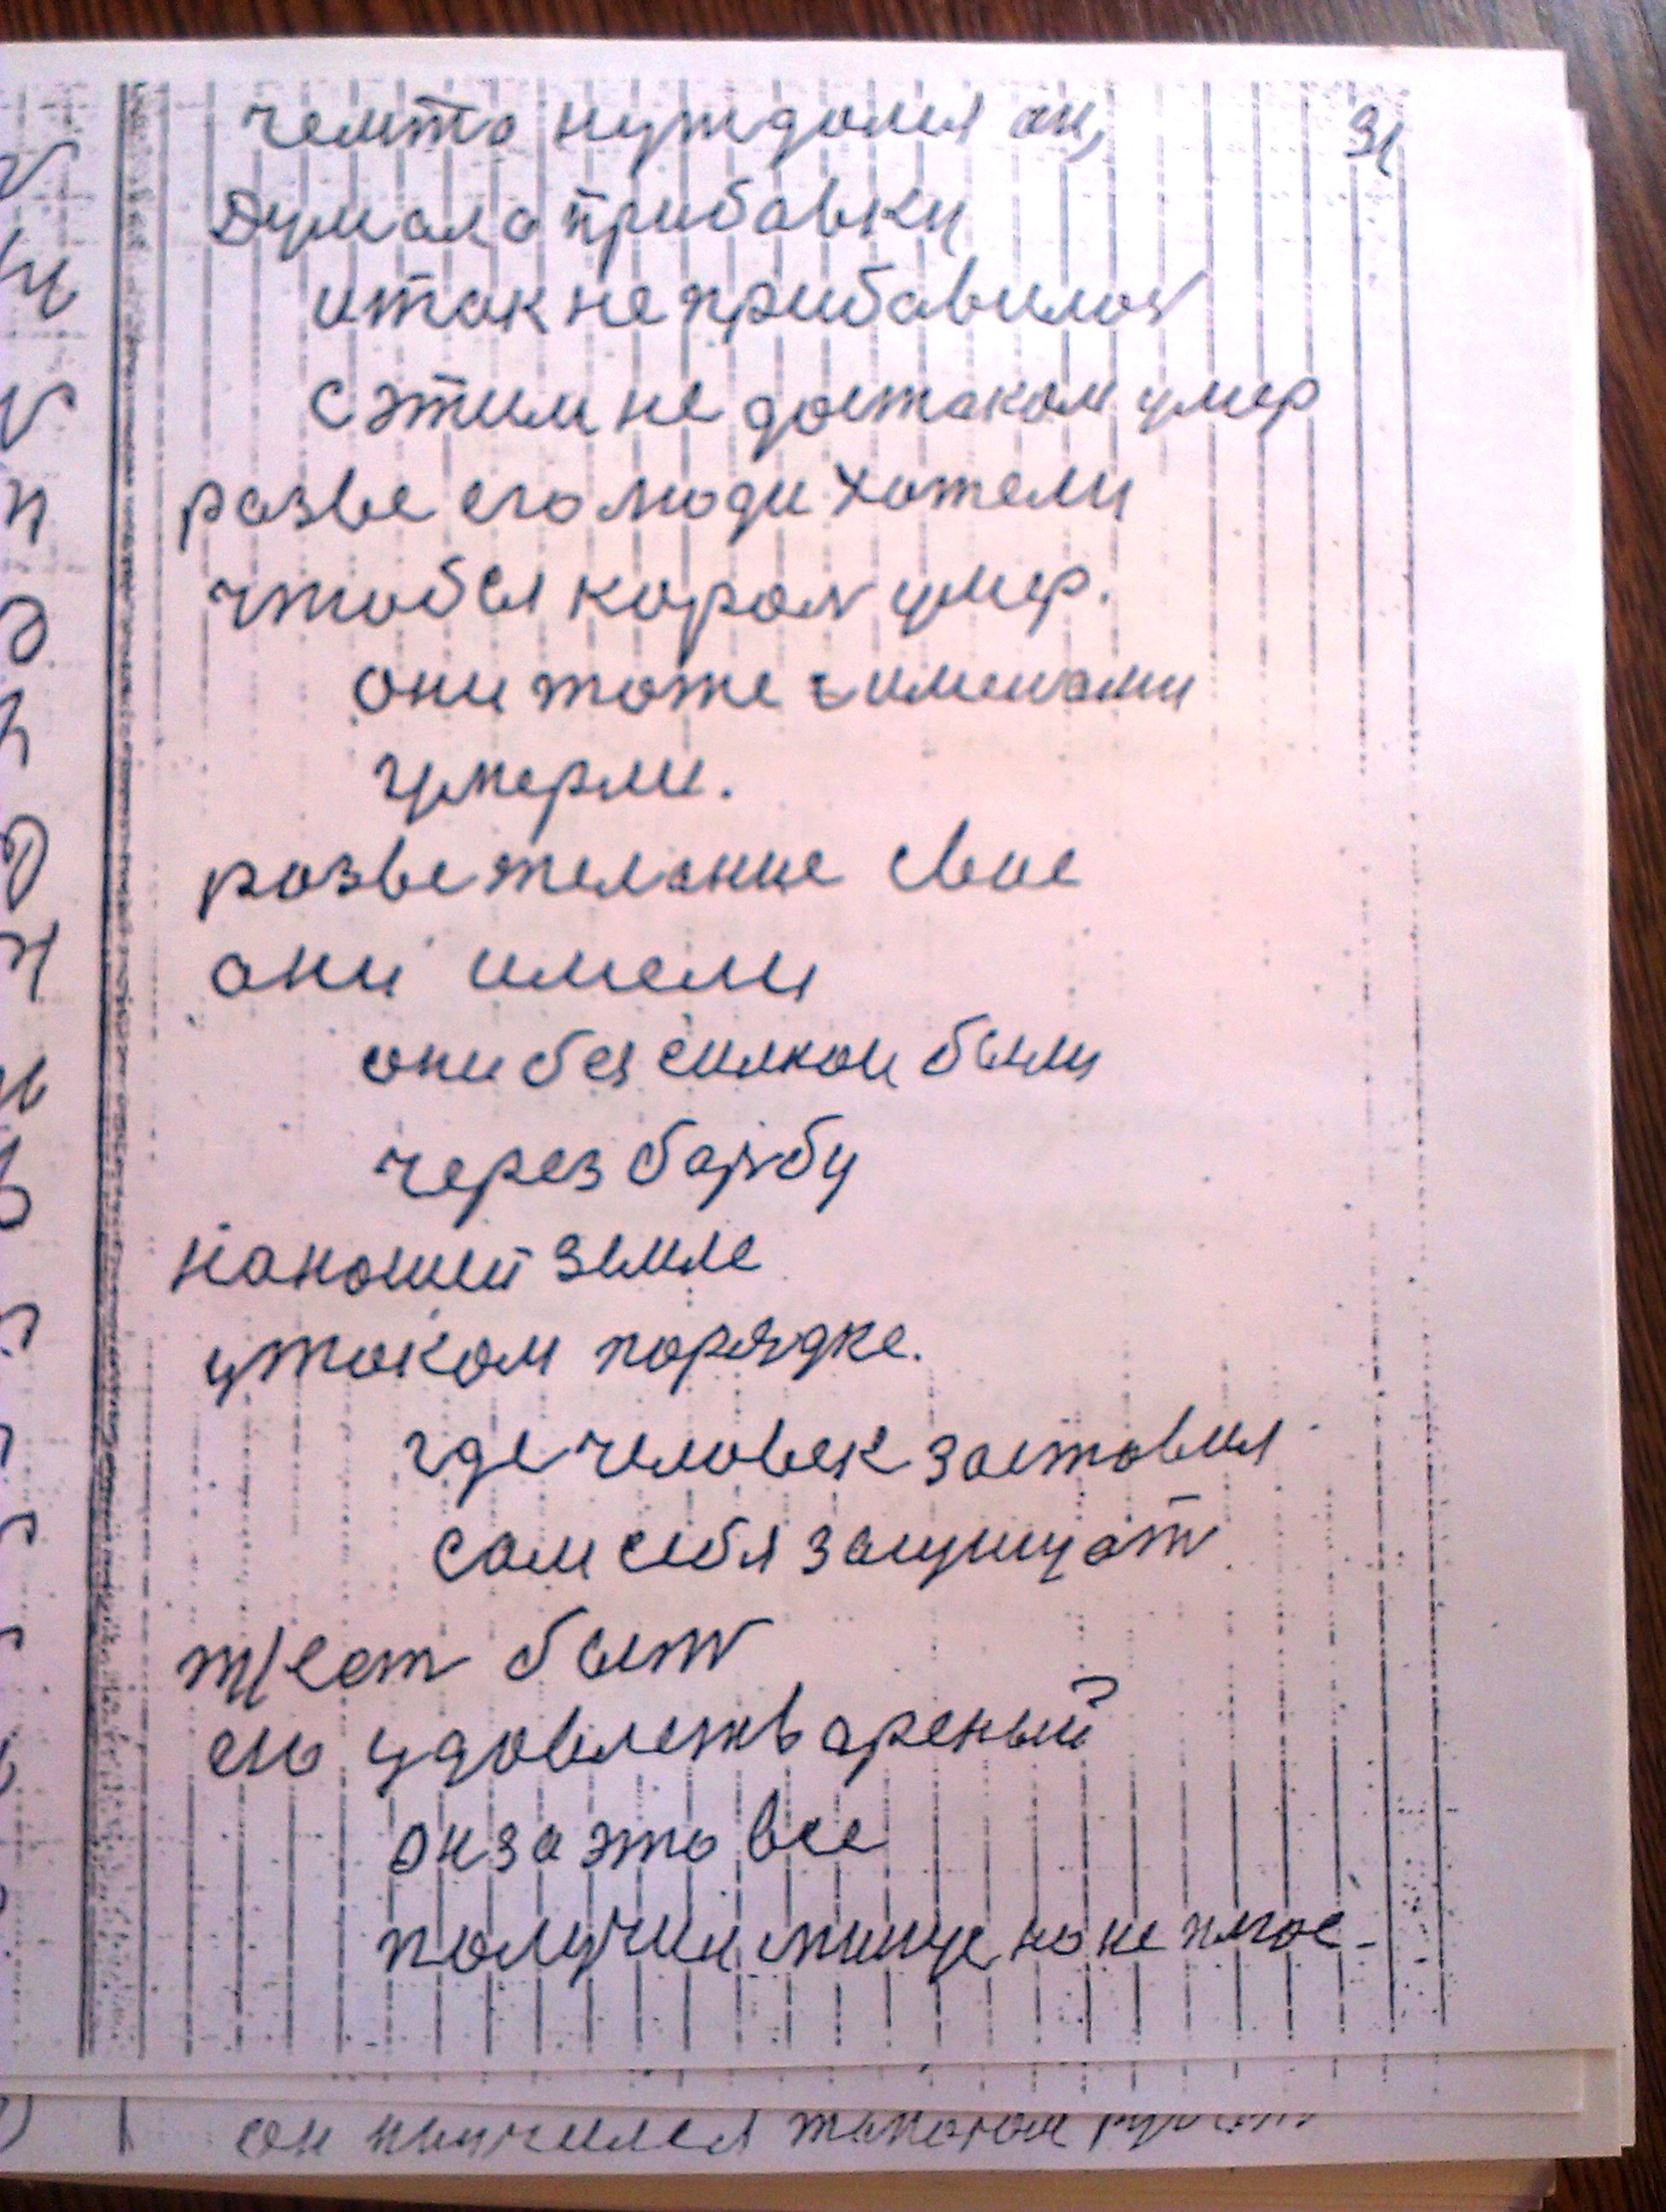 чемто нуждался он, 31
думал о прибавки
итак не прибавилос
с этим не достаком умер
разве его люди хотели
чтобы корол умер.
они тоже
умерли.
разве желание свое
они имели
они без силном были
через барбу
на нашей земле
у таком порядке.
где человек заставил
сам себя защищат
быт
его удовлетвареный
он за это все
получил но не